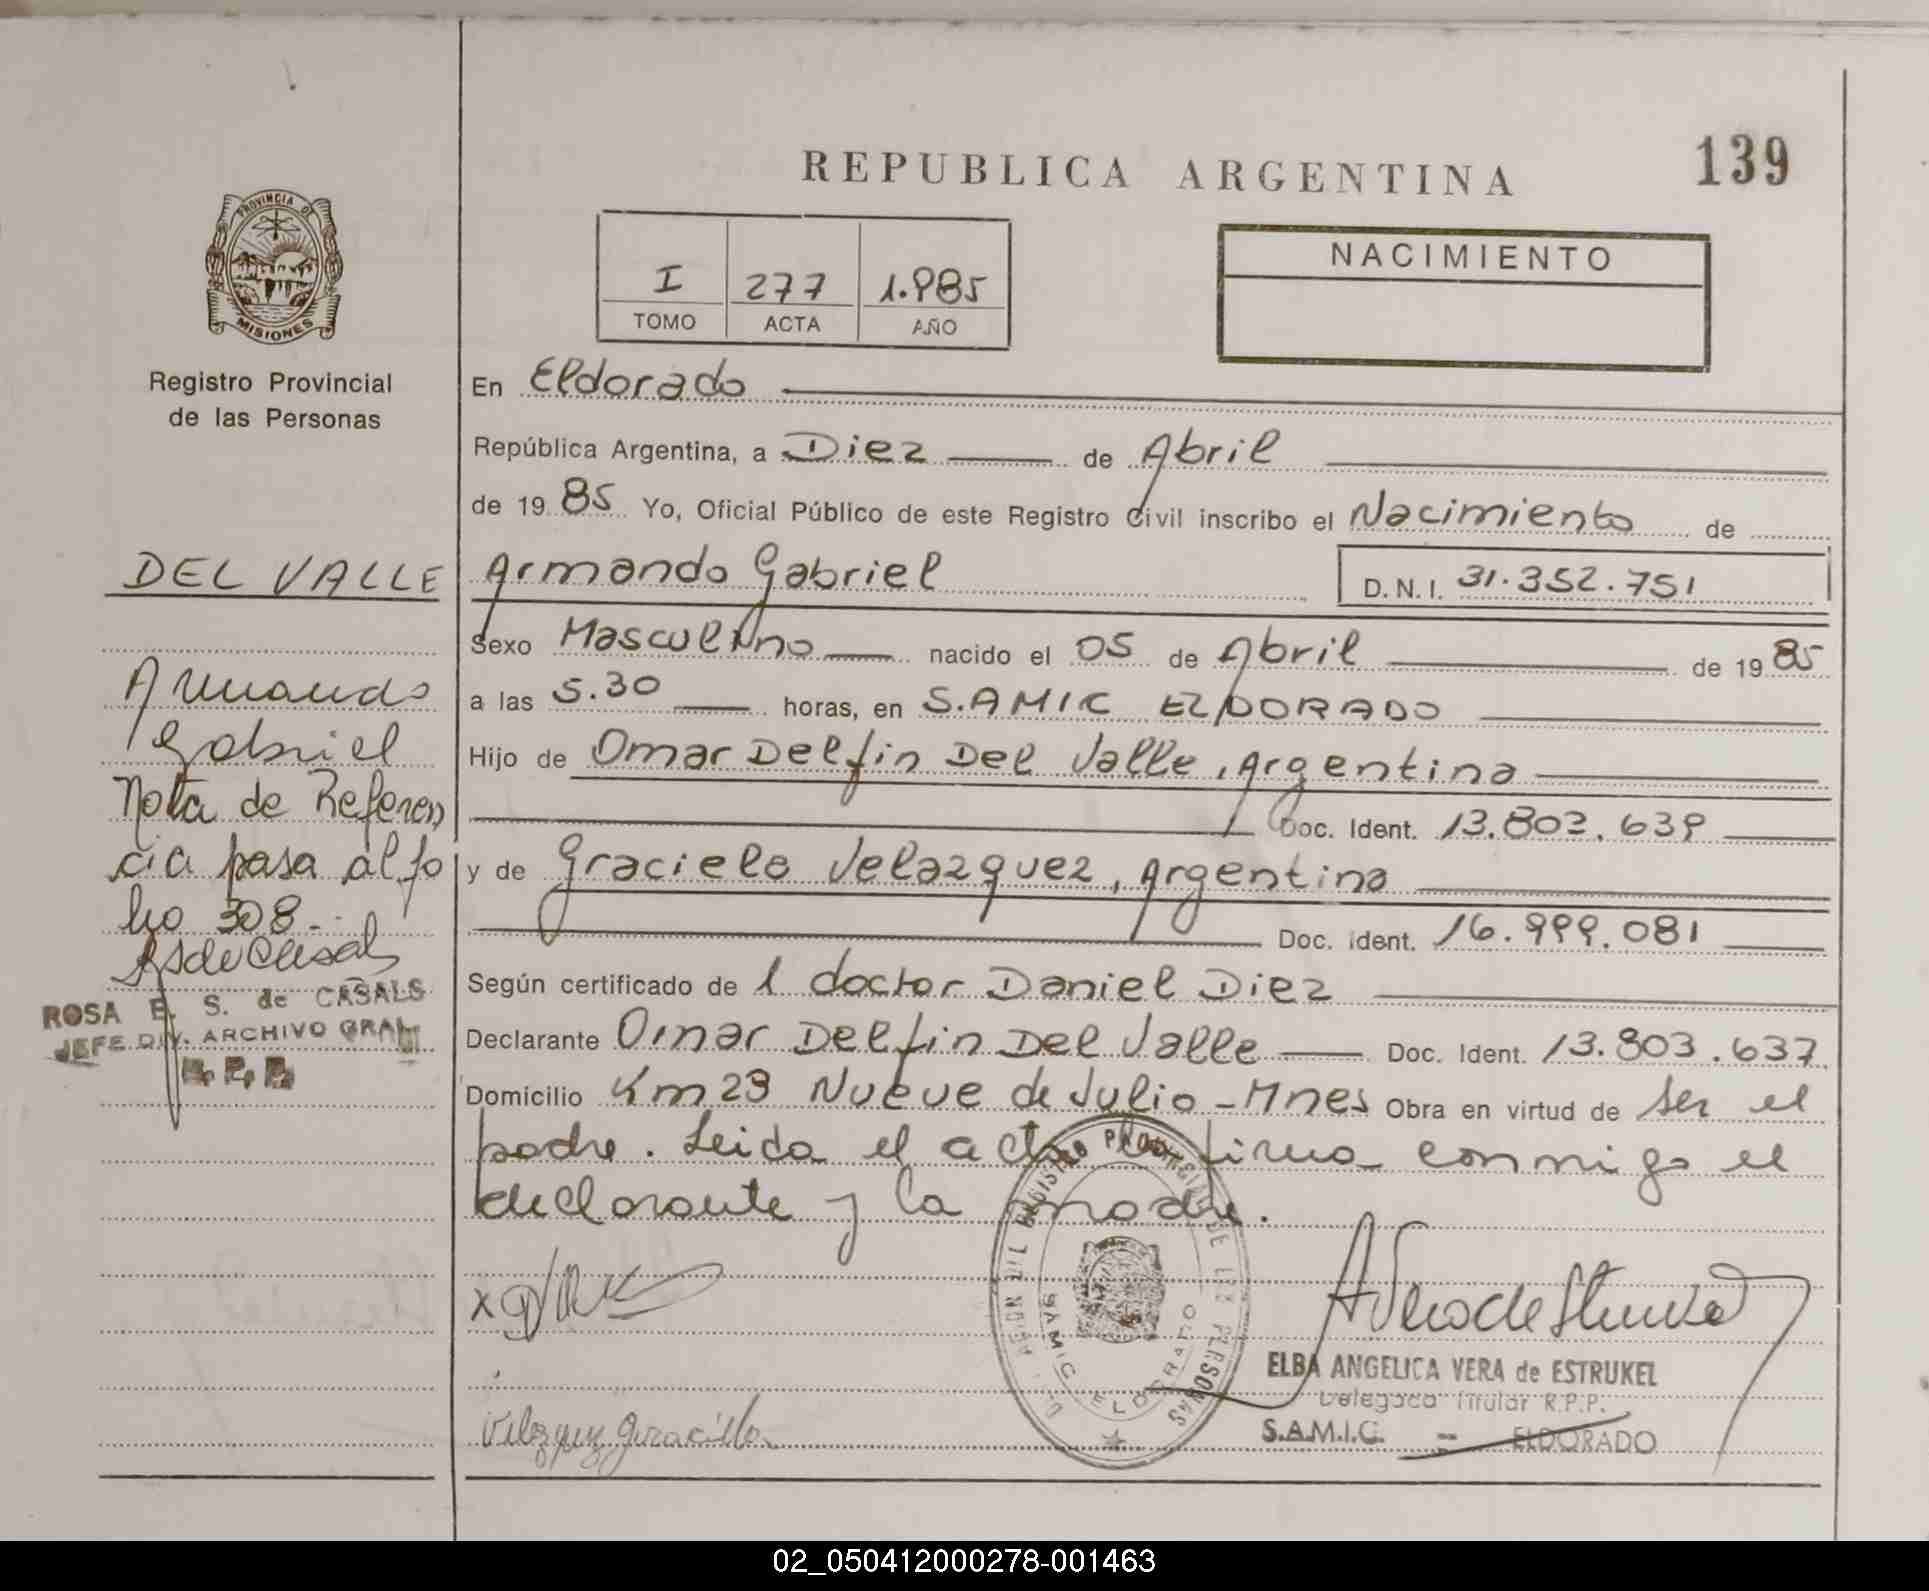 139
REPUBLICA ARGENTINA
PROVINCIA DE
MISIONES
Registro Provincial
de las Personas
I 277 1.985
TOMO ACTA AÑO
NACIMIENTO
En Eldorado
República Argentina, a Diez de Abril
de 1985 Yo, Oficial Público de este Registro Civil inscribo el Nacimiento de
DEL VALLE Armando Gabriel D.N.I. 31.352.751
Sexo Masculino nacido el 05 de Abril de 1985
a las 5.30 horas, en S.AMIC ELDORADO
Hijo de Omar Delfin Del Valle, Argentina
Doc. Ident. 13.803.639
y de Graciela Velazquez, Argentina
Doc. Ident. 16.999.081
Según certificado de l doctor Daniel Diez
Declarante Omar Delfin Del Valle Doc. Ident. 13.803.637
Domicilio Km 23 Nueve de Julio - Mnes Obra en virtud de ser el
padre. Leida el acta la firma conmigo el
declarante y la madre.
Armando
Gabriel
Nota de Referen
cia pasa al fo
lio 308.-
ROSA E. S. de CASALS
JEFE DIV. ARCHIVO GRAL
R. P. P.
Velazquez Graciela
REGISTRO PROVINCIAL DE LAS PERSONAS
SAMIC ELDORADO
ELBA ANGELICA VERA de ESTRUKEL
Delegada Titular R.P.P.
S.A.M.I.C. - ELDORADO
02_050412000278-001463